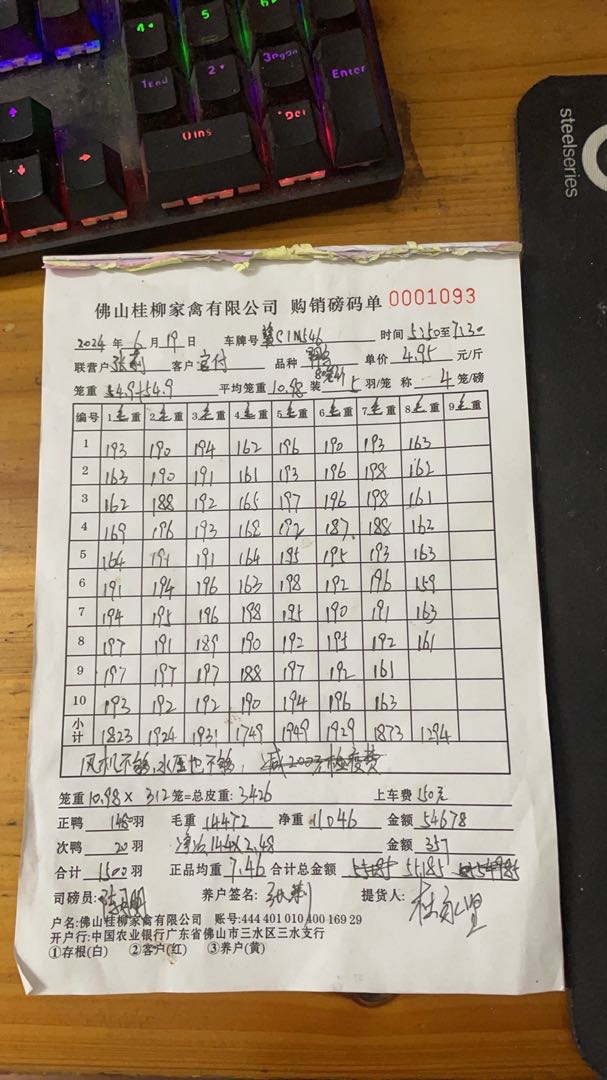 4
5
1End
2
3pgdn
Enter
0ins
Del
steelseries
佛山桂柳家禽有限公司 购销磅码单 0001093
2024 年 6 月 19 日 车牌号 C1N546 时间 5:50至7:30
联营户 张利 客户 定付 品种 单价 4.95 元/斤
笼重 54.9+54.9 平均笼重 10.98 装 5 羽/笼 称 4 笼/磅
编号 1毛重 2毛重 3毛重 4毛重 5毛重 6毛重 7毛重 8毛重 9毛重
1 193 190 194 162 196 190 193 163
2 163 190 191 161 193 196 198 162
3 162 188 192 165 197 196 198 161
4 169 196 193 168 192 187 188 162
5 164 191 191 164 195 195 193 163
6 191 194 196 163 198 192 196 159
7 194 195 196 198 195 190 191 163
8 197 191 189 190 192 195 192 161
9 197 197 197 188 197 192 161
10 193 192 192 190 194 196 163
小计 1823 1924 1931 1749 1949 1929 1873 1294
风机不够,水压也不够, 减200元检疫费
笼重 10.98 × 312 笼=总皮重: 3426 上车费 150元
正鸭 1480 羽 毛重 14472 净重 11046 金额 54678
次鸭 20 羽 净次144×2.48 金额 357
合计 1500 羽 正品均重 7.46 合计总金额 55185
司磅员: 养户签名: 张利 提货人:
户名:佛山桂柳家禽有限公司 账号:444 401 010 400 169 29
开户行:中国农业银行广东省佛山市三水区三水支行
①存根(白) ②客户(红) ③养户(黄)